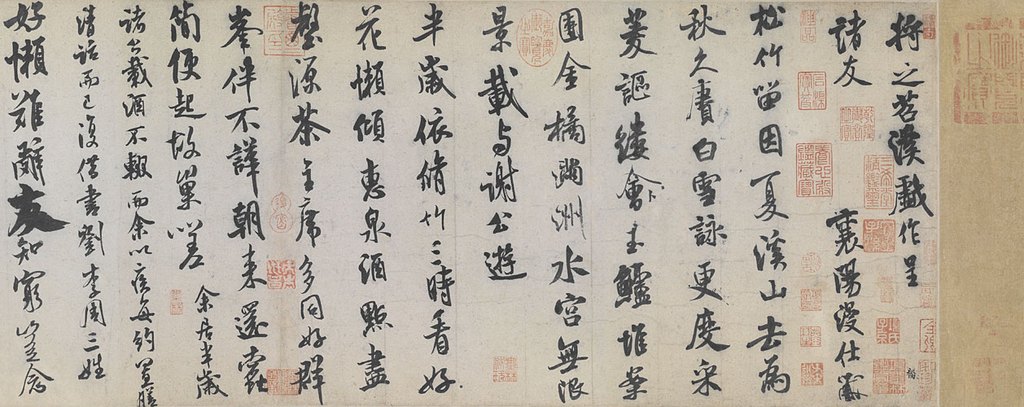 将之苕溪戲作呈
諸友
襄陽漫仕黻
松竹留因夏溪山去為
秋久賡白雪詠更度采
菱謳縷會玉鱸堆案
團金橘滿洲水宮無限
景載与謝公遊
半歲依脩竹三時看好
花懶傾惠泉酒點盡
壑源茶主席多同好群
峯伴不譁朝来還蠹
簡便起故巢嗟
余居半歲
諸公載酒不輟而余以疾每約置膳
清話而已復借書劉李周三姓
好懶難辭友知窮豈念